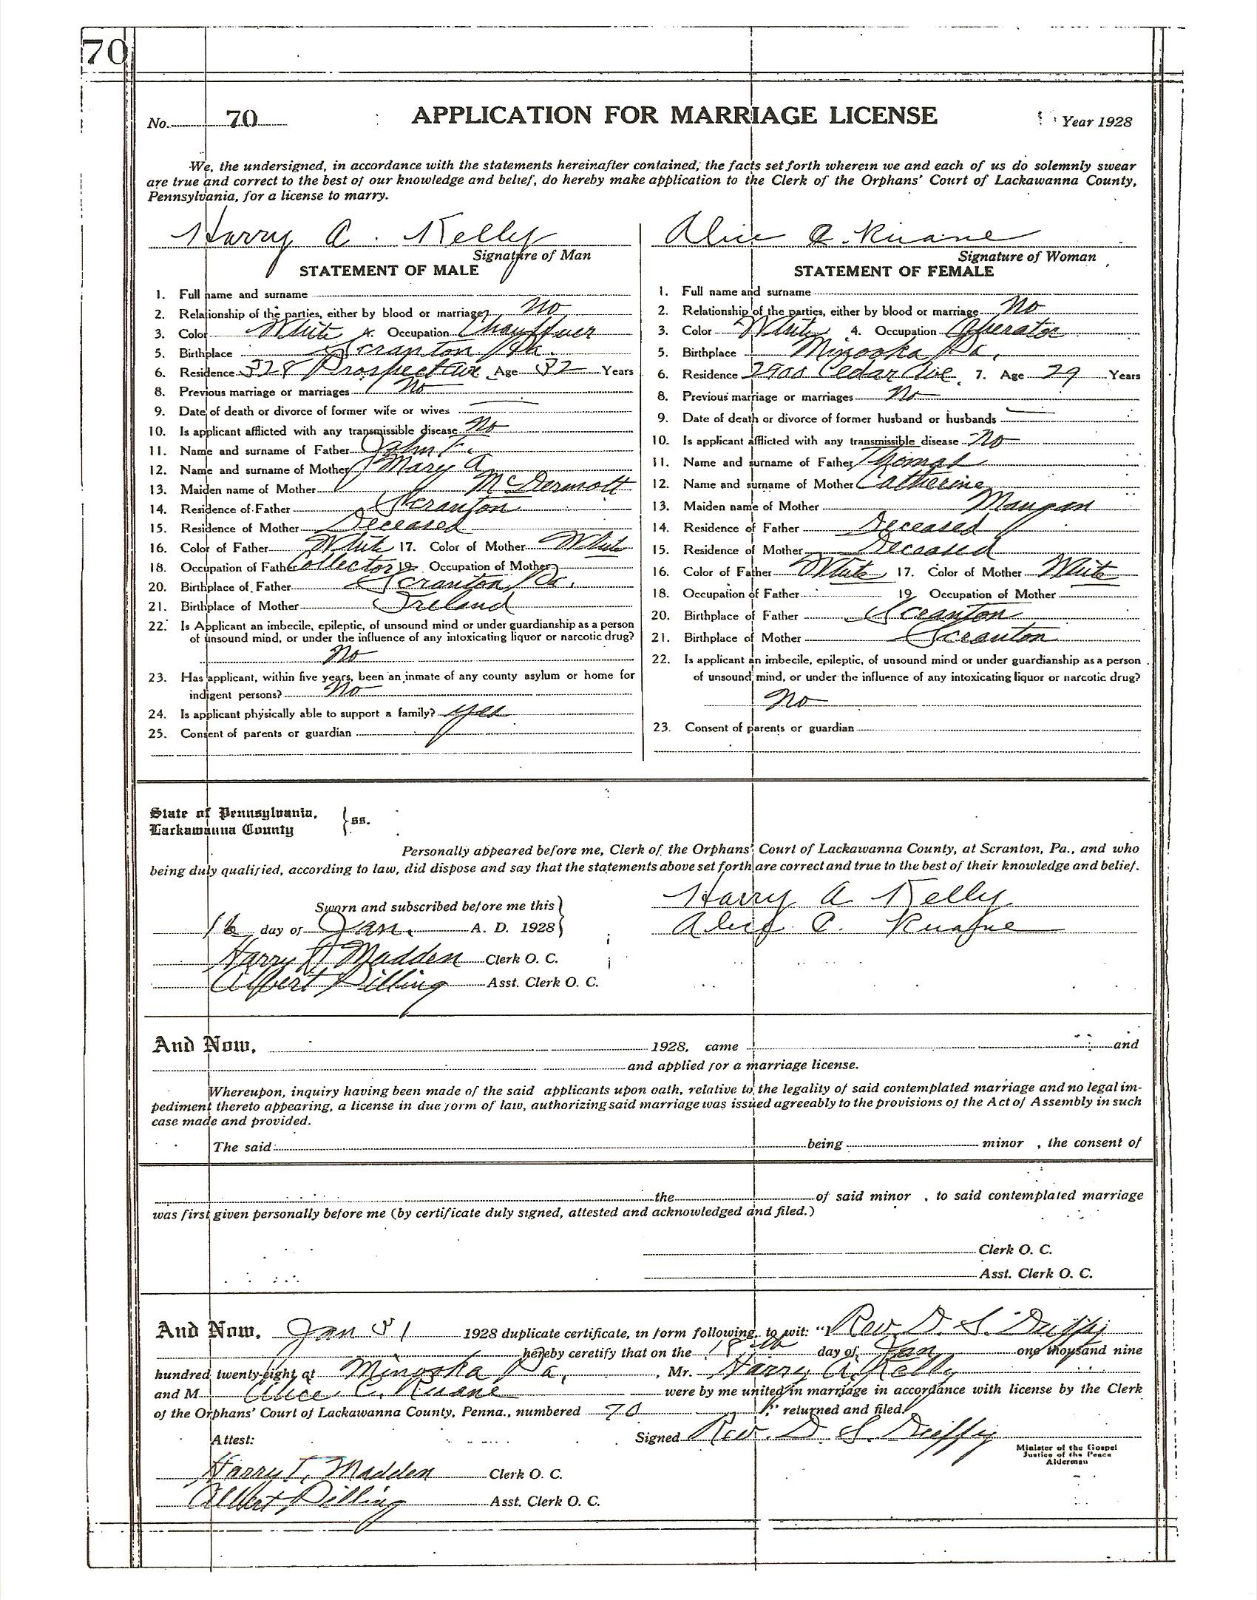 70
No. 70 APPLICATION FOR MARRIAGE LICENSE Year 1928
We, the undersigned, in accordance with the statements hereinafter contained, the facts set forth wherein we and each of us do solemnly swear
are true and correct to the best of our knowledge and belief, do hereby make application to the Clerk of the Orphans' Court of Lackawanna County,
Pennsylvania, for a license to marry.
Harry A. Kelly
Signature of Man
STATEMENT OF MALE
1. Full name and surname
2. Relationship of the parties, either by blood or marriage No
3. Color White 4. Occupation Chauffeur
5. Birthplace Scranton Pa.
6. Residence 328 Prospect Ave Age 32 Years
8. Previous marriage or marriages No
9. Date of death or divorce of former wife or wives
10. Is applicant afflicted with any transmissible disease No
11. Name and surname of Father John F.
12. Name and surname of Mother Mary A.
13. Maiden name of Mother McDermott
14. Residence of Father Scranton
15. Residence of Mother Deceased
16. Color of Father White 17. Color of Mother White
18. Occupation of Father Collector 19. Occupation of Mother
20. Birthplace of Father Scranton Pa.
21. Birthplace of Mother Ireland
22. Is Applicant an imbecile, epileptic, of unsound mind or under guardianship as a person
of unsound mind, or under the influence of any intoxicating liquor or narcotic drug?
No
23. Has applicant, within five years, been an inmate of any county asylum or home for
indigent persons? No
24. Is applicant physically able to support a family? yes
25. Consent of parents or guardian
Alice C. Ruane
Signature of Woman
STATEMENT OF FEMALE
1. Full name and surname
2. Relationship of the parties, either by blood or marriage No
3. Color White 4. Occupation Operator
5. Birthplace Minooka Pa.
6. Residence 2900 Cedar Ave. 7. Age 29 Years
8. Previous marriage or marriages No
9. Date of death or divorce of former husband or husbands
10. Is applicant afflicted with any transmissible disease No
11. Name and surname of Father Thomas
12. Name and surname of Mother Catherine
13. Maiden name of Mother Mangan
14. Residence of Father Deceased
15. Residence of Mother Deceased
16. Color of Father White 17. Color of Mother White
18. Occupation of Father 19 Occupation of Mother
20. Birthplace of Father Scranton
21. Birthplace of Mother Scranton
22. Is applicant an imbecile, epileptic, of unsound mind or under guardianship as a person
of unsound mind, or under the influence of any intoxicating liquor or narcotic drug?
No
23. Consent of parents or guardian
State of Pennsylvania,
Lackawanna County } ss.
Personally appeared before me, Clerk of the Orphans' Court of Lackawanna County, at Scranton, Pa., and who
being duly qualified, according to law, did dispose and say that the statements above set forth are correct and true to the best of their knowledge and belief.
Harry A Kelly
Alice C. Ruane
Sworn and subscribed before me this
16 day of Jan. A. D. 1928
Harry T Madden Clerk O. C.
Albert Pilling Asst. Clerk O. C.
And Now, 1928, came and
and applied for a marriage license.
Whereupon, inquiry having been made of the said applicants upon oath, relative to the legality of said contemplated marriage and no legal im-
pediment thereto appearing, a license in due form of law, authorizing said marriage was issued agreeably to the provisions of the Act of Assembly in such
case made and provided.
The said being minor , the consent of
the of said minor , to said contemplated marriage
was first given personally before me (by certificate duly signed, attested and acknowledged and filed.)
Clerk O. C.
Asst. Clerk O. C.
And Now, Jan 31 1928 duplicate certificate, in form following, to wit: "I Rev. D. S. Duffy
hereby ceretify that on the 18th day of Jan one thousand nine
hundred twenty-eight at Minooka Pa, , Mr. Harry A. Kelly
and M Alice C. Ruane were by me united in marriage in accordance with license by the Clerk
of the Orphans' Court of Lackawanna County, Penna., numbered 70 " returned and filed.
Attest: Signed Rev. D. S. Duffy
Minister of the Gospel
Justice of the Peace
Alderman
Harry T. Madden Clerk O. C.
Albert Pilling Asst. Clerk O. C.